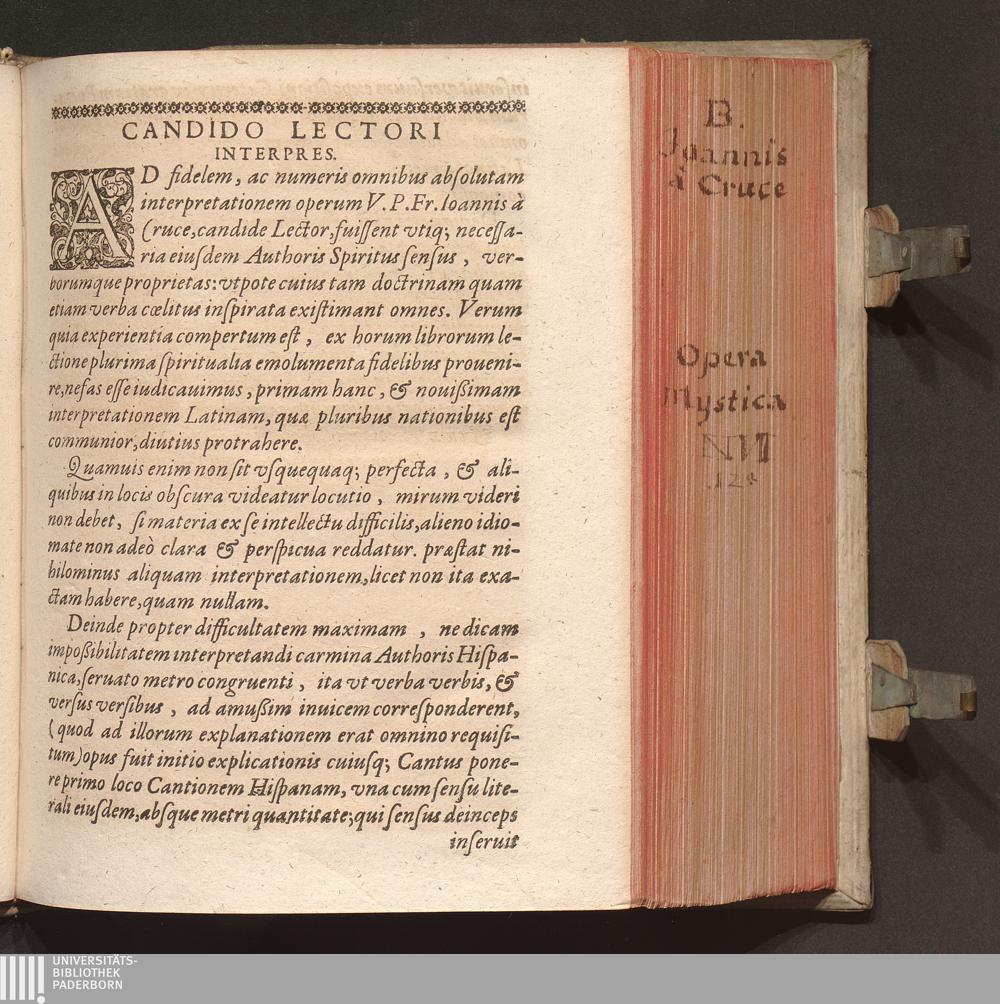 CANDIDO LECTORI
INTERPRES.
AD fidelem, ac numeris omnibus abſolutam
interpretationem operum V. P. Fr. Ioannis à
Cruce, candide Lector, fuiſſent vtiq; neceſſa-
ria eiuſdem Authoris Spiritus ſenſus, ver-
borumque proprietas: vtpote cuius tam doctrinam quam
etiam verba cœlitus inſpirata exiſtimant omnes. Verum
quia experientia compertum eſt, ex horum librorum le-
ctione plurima ſpiritualia emolumenta fidelibus proueni-
re, nefas eſſe iudicauimus, primam hanc, & nouißimam
interpretationem Latinam, quæ pluribus nationibus eſt
communior, diutius protrahere.
Quamuis enim non ſit vſquequaq; perfecta, & ali-
quibus in locis obſcura videatur locutio, mirum videri
non debet, ſi materia ex ſe intellectu difficilis, alieno idio-
mate non adeò clara & perſpicua reddatur. præſtat ni-
hilominus aliquam interpretationem, licet non ita exa-
ctam habere, quam nullam.
Deinde propter difficultatem maximam, ne dicam
impoßibilitatem interpretandi carmina Authoris Hiſpa-
nica, ſeruato metro congruenti, ita vt verba verbis, &
verſus verſibus, ad amußim inuicem correſponderent,
(quod ad illorum explanationem erat omnino requiſi-
tum) opus fuit initio explicationis cuiuſq; Cantus pone-
re primo loco Cantionem Hiſpanam, vna cum ſenſu lite-
rali eiuſdem, abſque metri quantitate; qui ſenſus deinceps
inſeruit
B.
Joannis
à Cruce
Opera
Mystica
NVI
124
UNIVERSITÄTS-
BIBLIOTHEK
PADERBORN